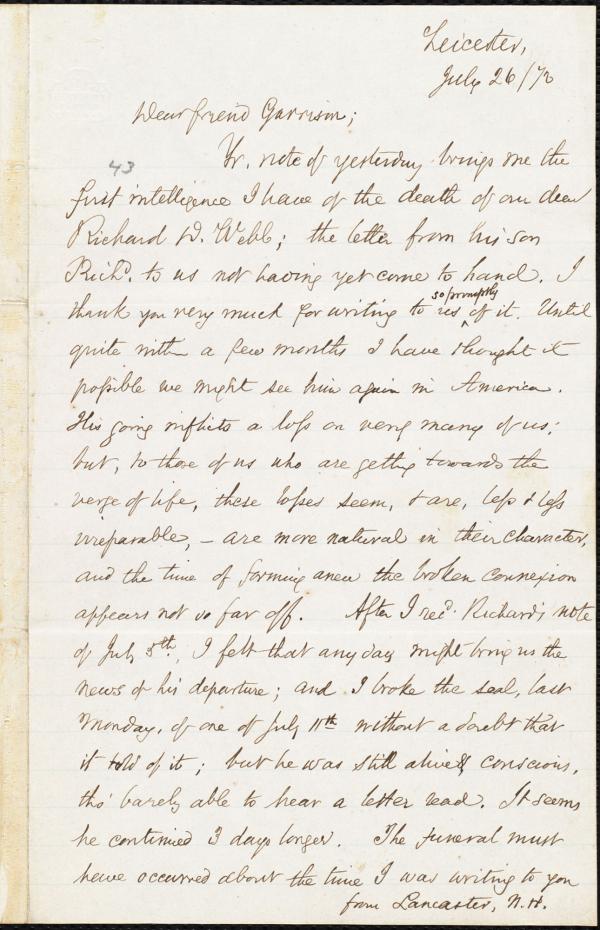 Leicester,
July 26/72
Dear friend Garrison;
43
Yr. note of yesterday brings me the
first intelligence I have of the death of our dear
Richard D. Webb; the letter from his son
Richd. to us not having yet come to hand. I
thank you very much for writing to us so promptly of it. Until
quite within a few months I have thought it
possible we might see him again in America.
His going inflicts a loss on very many of us;
but, to those of us who are getting towards the
verge of life, these losses seem, & are, less & less
irreparable, – are more natural in their character,
and the time of forming anew the broken connexion
appears not so far off. After I recd. Richard's note
of July 5th, I felt that any day might bring us the
news of his departure; and I broke the seal, last
Monday, of one of July 11th without a doubt that
it told of it; but he was still alive & conscious,
tho' barely able to hear a letter read. It seems
he continued 3 days longer. The funeral must
have occurred about the time I was writing to you
from Lancaster, N.H.